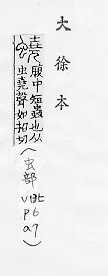 大徐本
蟯腹中短蟲也从
虫堯聲如招切
(虫部 V13上 p6 a7)